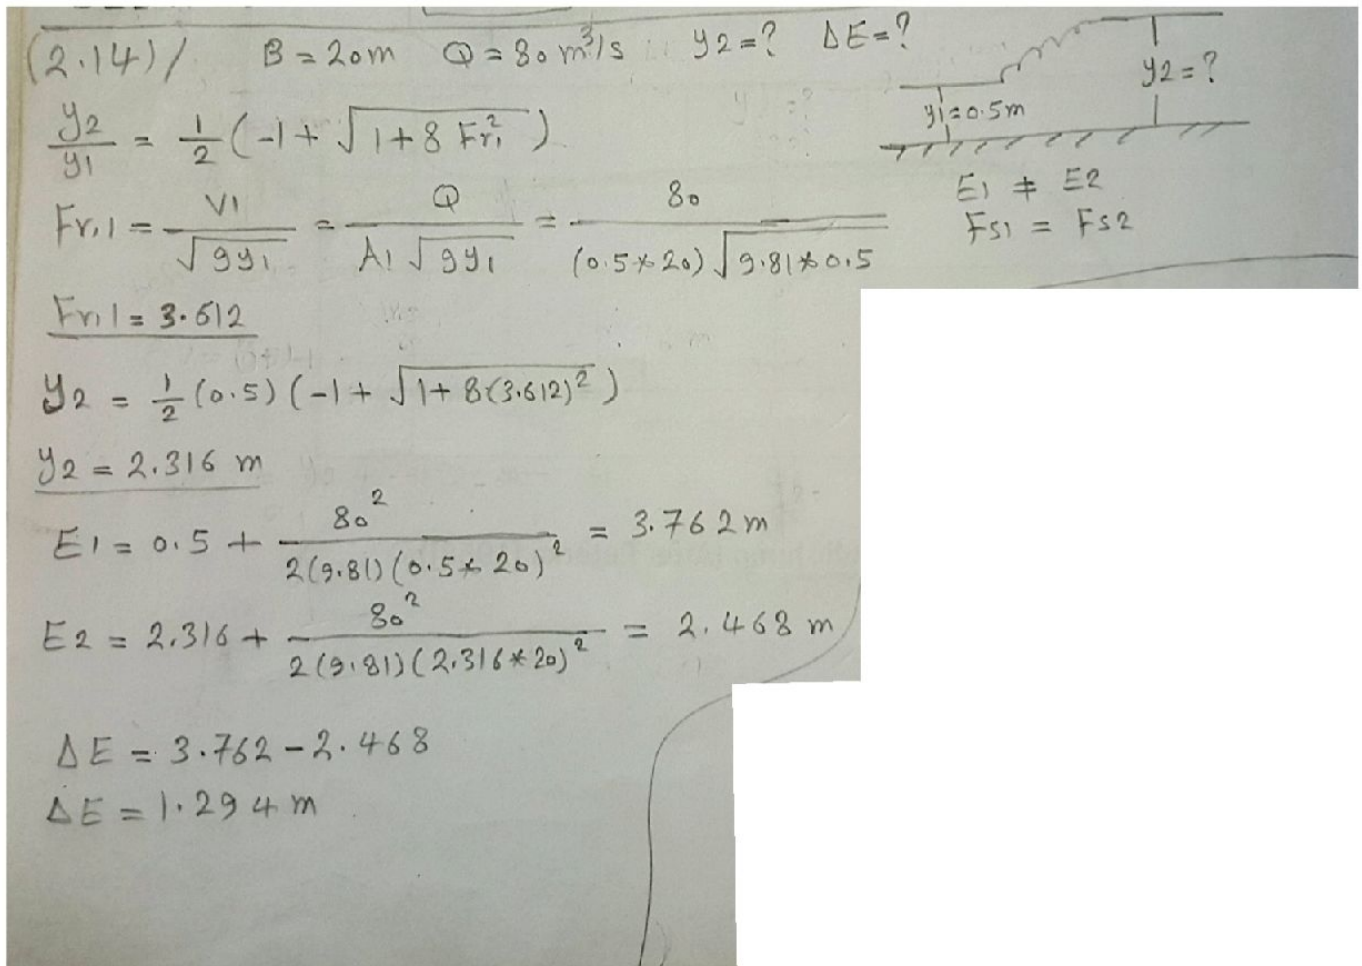 (2.14)/ B = 20m Q = 80 m³/s y2 = ? ΔE = ?
y2 = ?
y1 = 0.5m
y2/y1 = 1/2 (-1 + √(1 + 8 Fr,1²))
E1 ≠ E2
Fs1 = Fs2
Fr,1 = V1/√(gy1) = Q/(A1 √(gy1)) = 80/((0.5*20) √(9.81*0.5))
Fr,1 = 3.612
y2 = 1/2 (0.5) (-1 + √(1 + 8(3.612)²))
y2 = 2.316 m
E1 = 0.5 + 80²/(2(9.81)(0.5*20)²) = 3.762 m
E2 = 2.316 + 80²/(2(9.81)(2.316*20)²) = 2.468 m
ΔE = 3.762 - 2.468
ΔE = 1.294 m